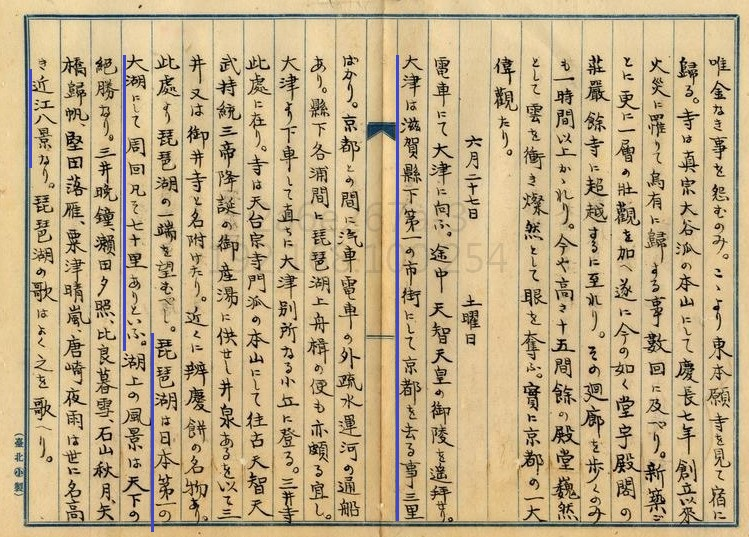 唯金なき事を怨むのみ。こゝより東本願寺を見て宿に
歸る。寺は真宗大谷派の本山にして慶長七年創立以來
火災に罹りて烏有に歸する事數回に及べり。新築ご
とに更に一層の壯觀を加へ遂に今の如く堂宇殿閣の
莊嚴餘寺に超越するに至れり。その廻廊を歩くのみ
も一時間以上かゝれり。今や高さ十五間餘の殿堂巍然
として雲を衝き燦然として眼を奪ふ。實に京都の一大
偉觀たり。
六月二十七日 土曜日
電車にて大津に向ふ。途中天智天皇の御陵を遙拜せり。
大津は滋賀縣下第一の市街にして京都を去る事三里
ばかり。京都との間に汽車電車の外疏水運河の通船
あり。縣下各浦間に琵琶湖上舟楫の便も亦頗る宜し。
大津より下車して直ちに大津別所なる小丘に登る。三井寺
此處に在り。寺は天台宗寺門派の本山にして往古天智天
武持統三帝降誕の御産湯に供せし井泉あるを以て三
井又は御井寺と名附けたり。近くに辨慶餅の名物あり。
此處より琵琶湖の一端を望むべし。琵琶湖は日本第一の
大湖にして周回凡そ七十里ありといふ。湖上の風景は天下の
絶勝なり。三井晩鐘、瀬田夕照、比良暮雪、石山秋月、矢
橋歸帆、堅田落雁、粟津晴嵐、唐崎夜雨は世に名高
き近江八景なり。琵琶湖の歌はよく之を歌へり。
(臺北小製)